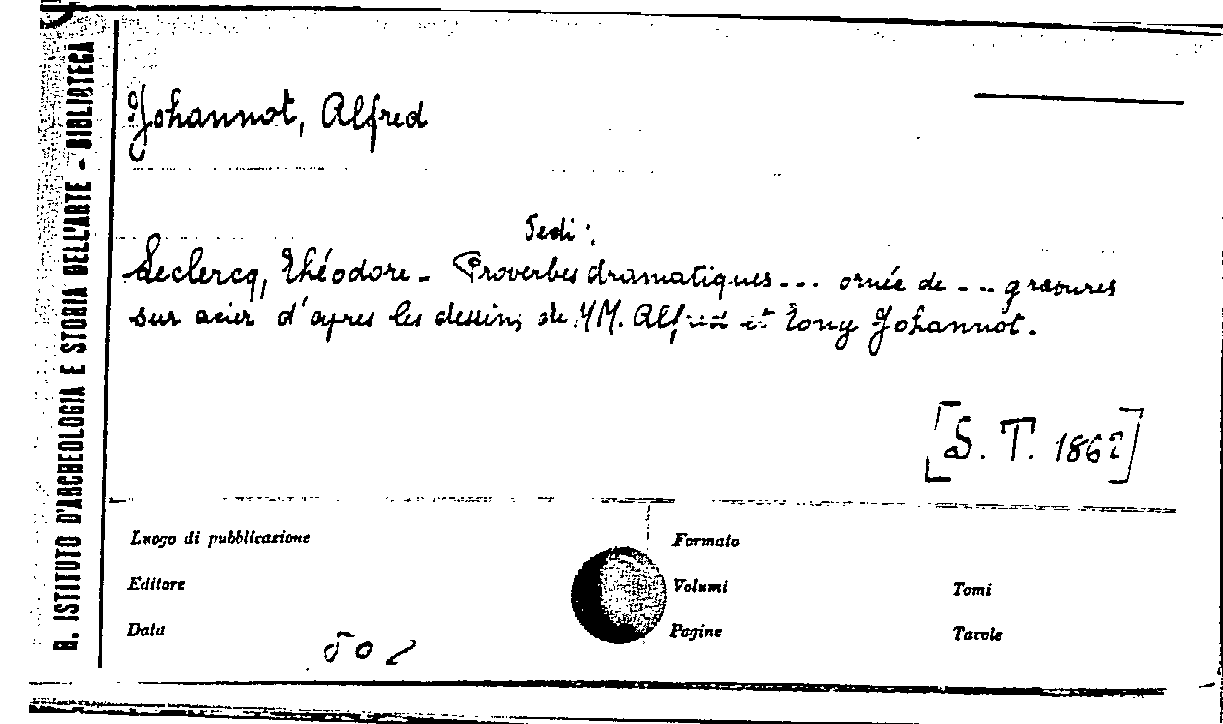 R. ISTITUTO D'ARCHEOLOGIA E STORIA DELL'ARTE - BIBLIOTECA
Johannot, Alfred
Vedi:
Leclercq, Théodore - Proverbes dramatiques... ornée de --- gravures
sur acier d'après les dessins de MM. Alfred et Tony Johannot.
[S. T. 1862]
Luogo di pubblicazione
Formato
Editore
Volumi
Tomi
Data
Pagine
Tavole